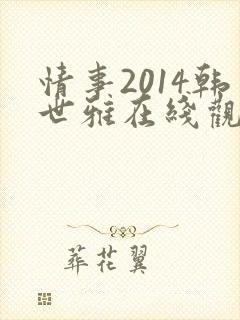 情事2014韩
世雅在綫觀
葬花翼